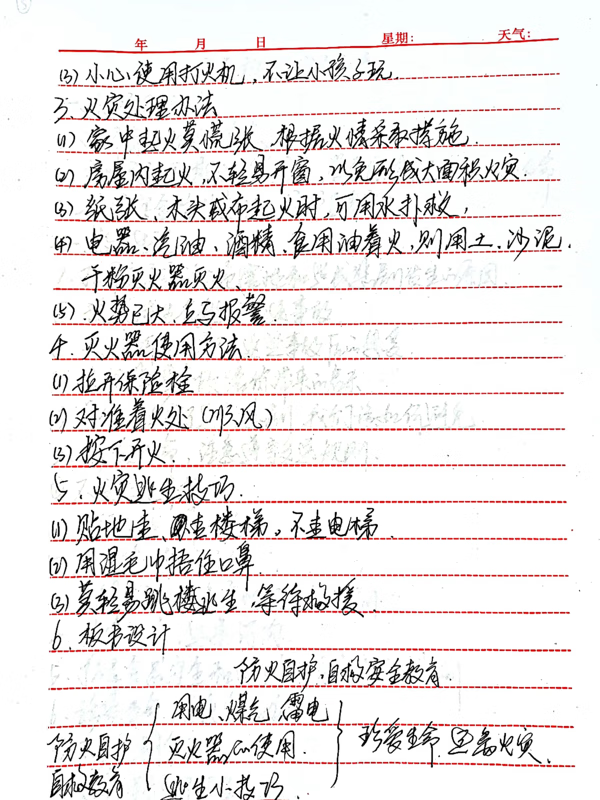 年 月 日 星期： 天气：
(3) 小心使用打火机，不让小孩子玩.
3. 火灾处理办法
(1) 家中起火莫慌张，根据火情采取措施.
(2) 房屋内起火，不轻易开窗，以免形成大面积火灾.
(3) 纸张、木头或布起火时，可用水扑救，
(4) 电器、汽油、酒精、食用油着火，则用土、沙泥、
干粉灭火器灭火、
(5). 火势已大，立马报警.
4. 灭火器使用方法.
(1) 拉开保险栓
(2) 对准着火处 (顺风)
(3) 按下开火.
5. 火灾逃生技巧.
(1) 贴地走、走楼梯，不走电梯.
(2) 用湿毛巾捂住口鼻.
(3) 莫轻易跳楼逃生，等待救援.
6. 板书设计
防火自护，自救安全教育.
用电、煤气 雷电
防火自护 灭火器的使用. 珍爱生命 火灾.
自救教育 逃生小技巧.